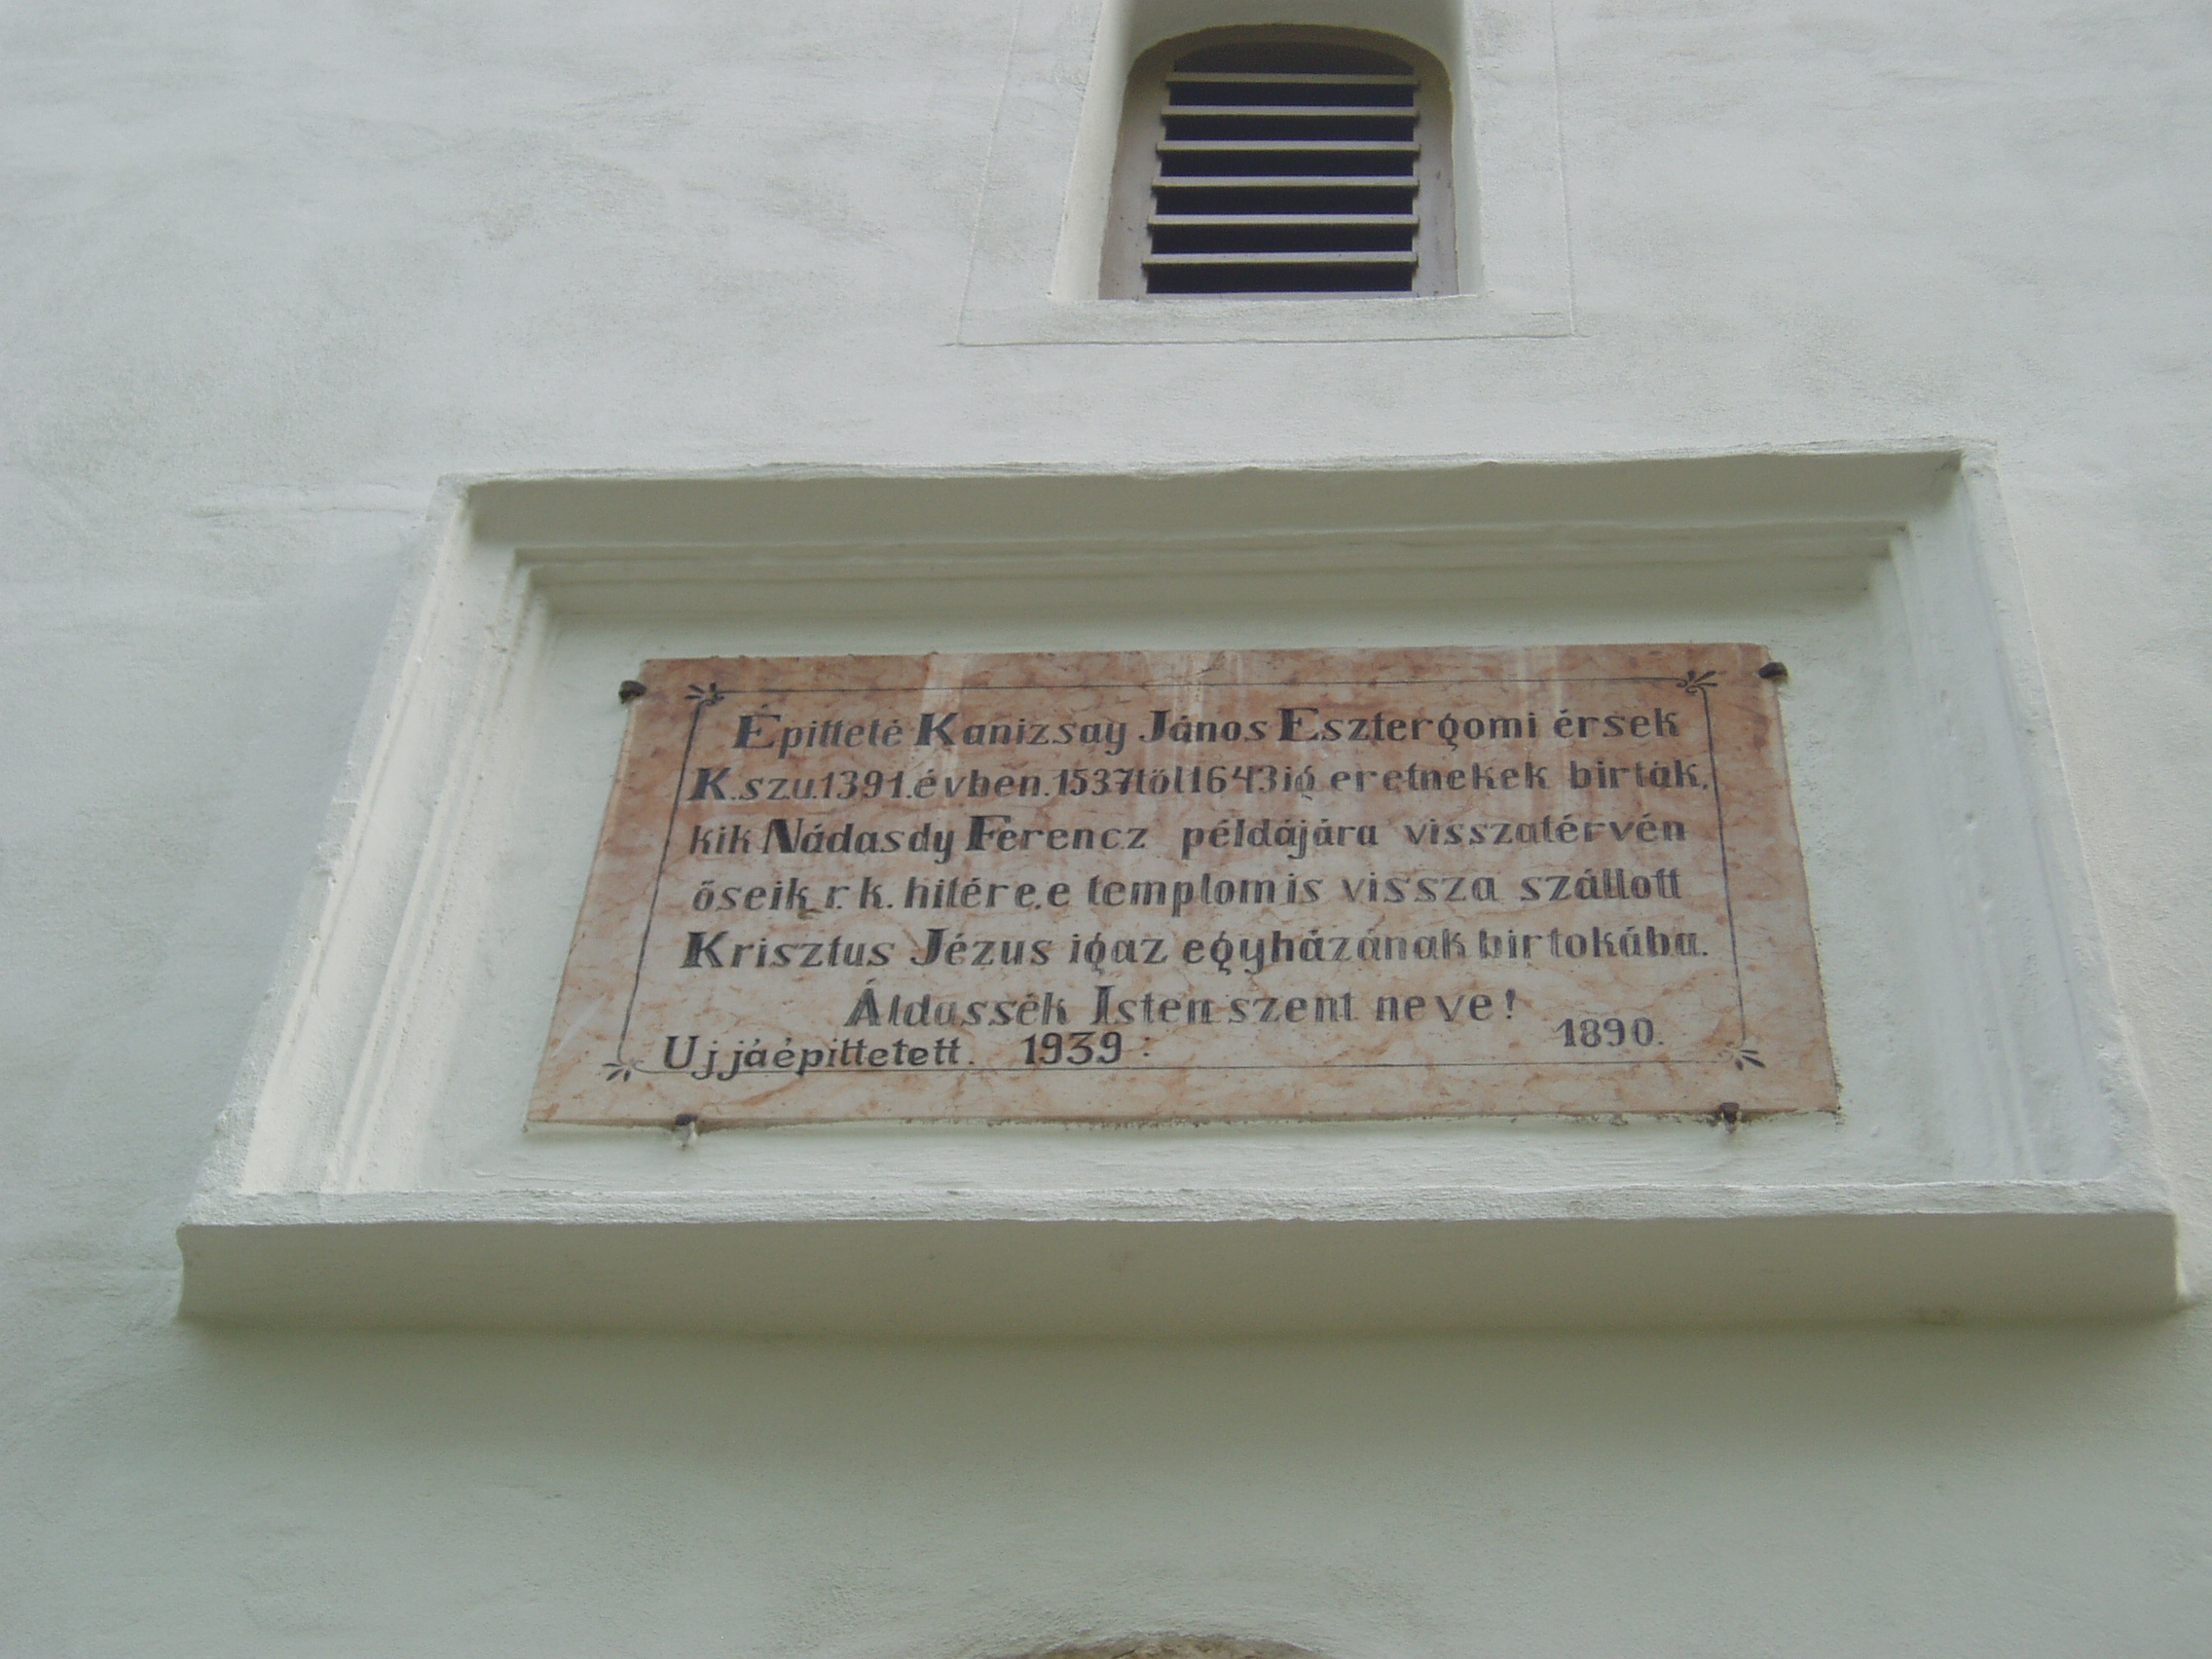 Épitteté Kanizsay János Esztergomi érsek
K.szu.1391.évben.1537töl1643ig eretnekek birták,
kik Nádasdy Ferencz példájára visszatérvén
őseik r.k. hitére,e templom is vissza szállott
Krisztus Jézus igaz egyházának birtokába.
Áldassék Isten szent neve!
1890.
Ujjáépittetett. 1939.